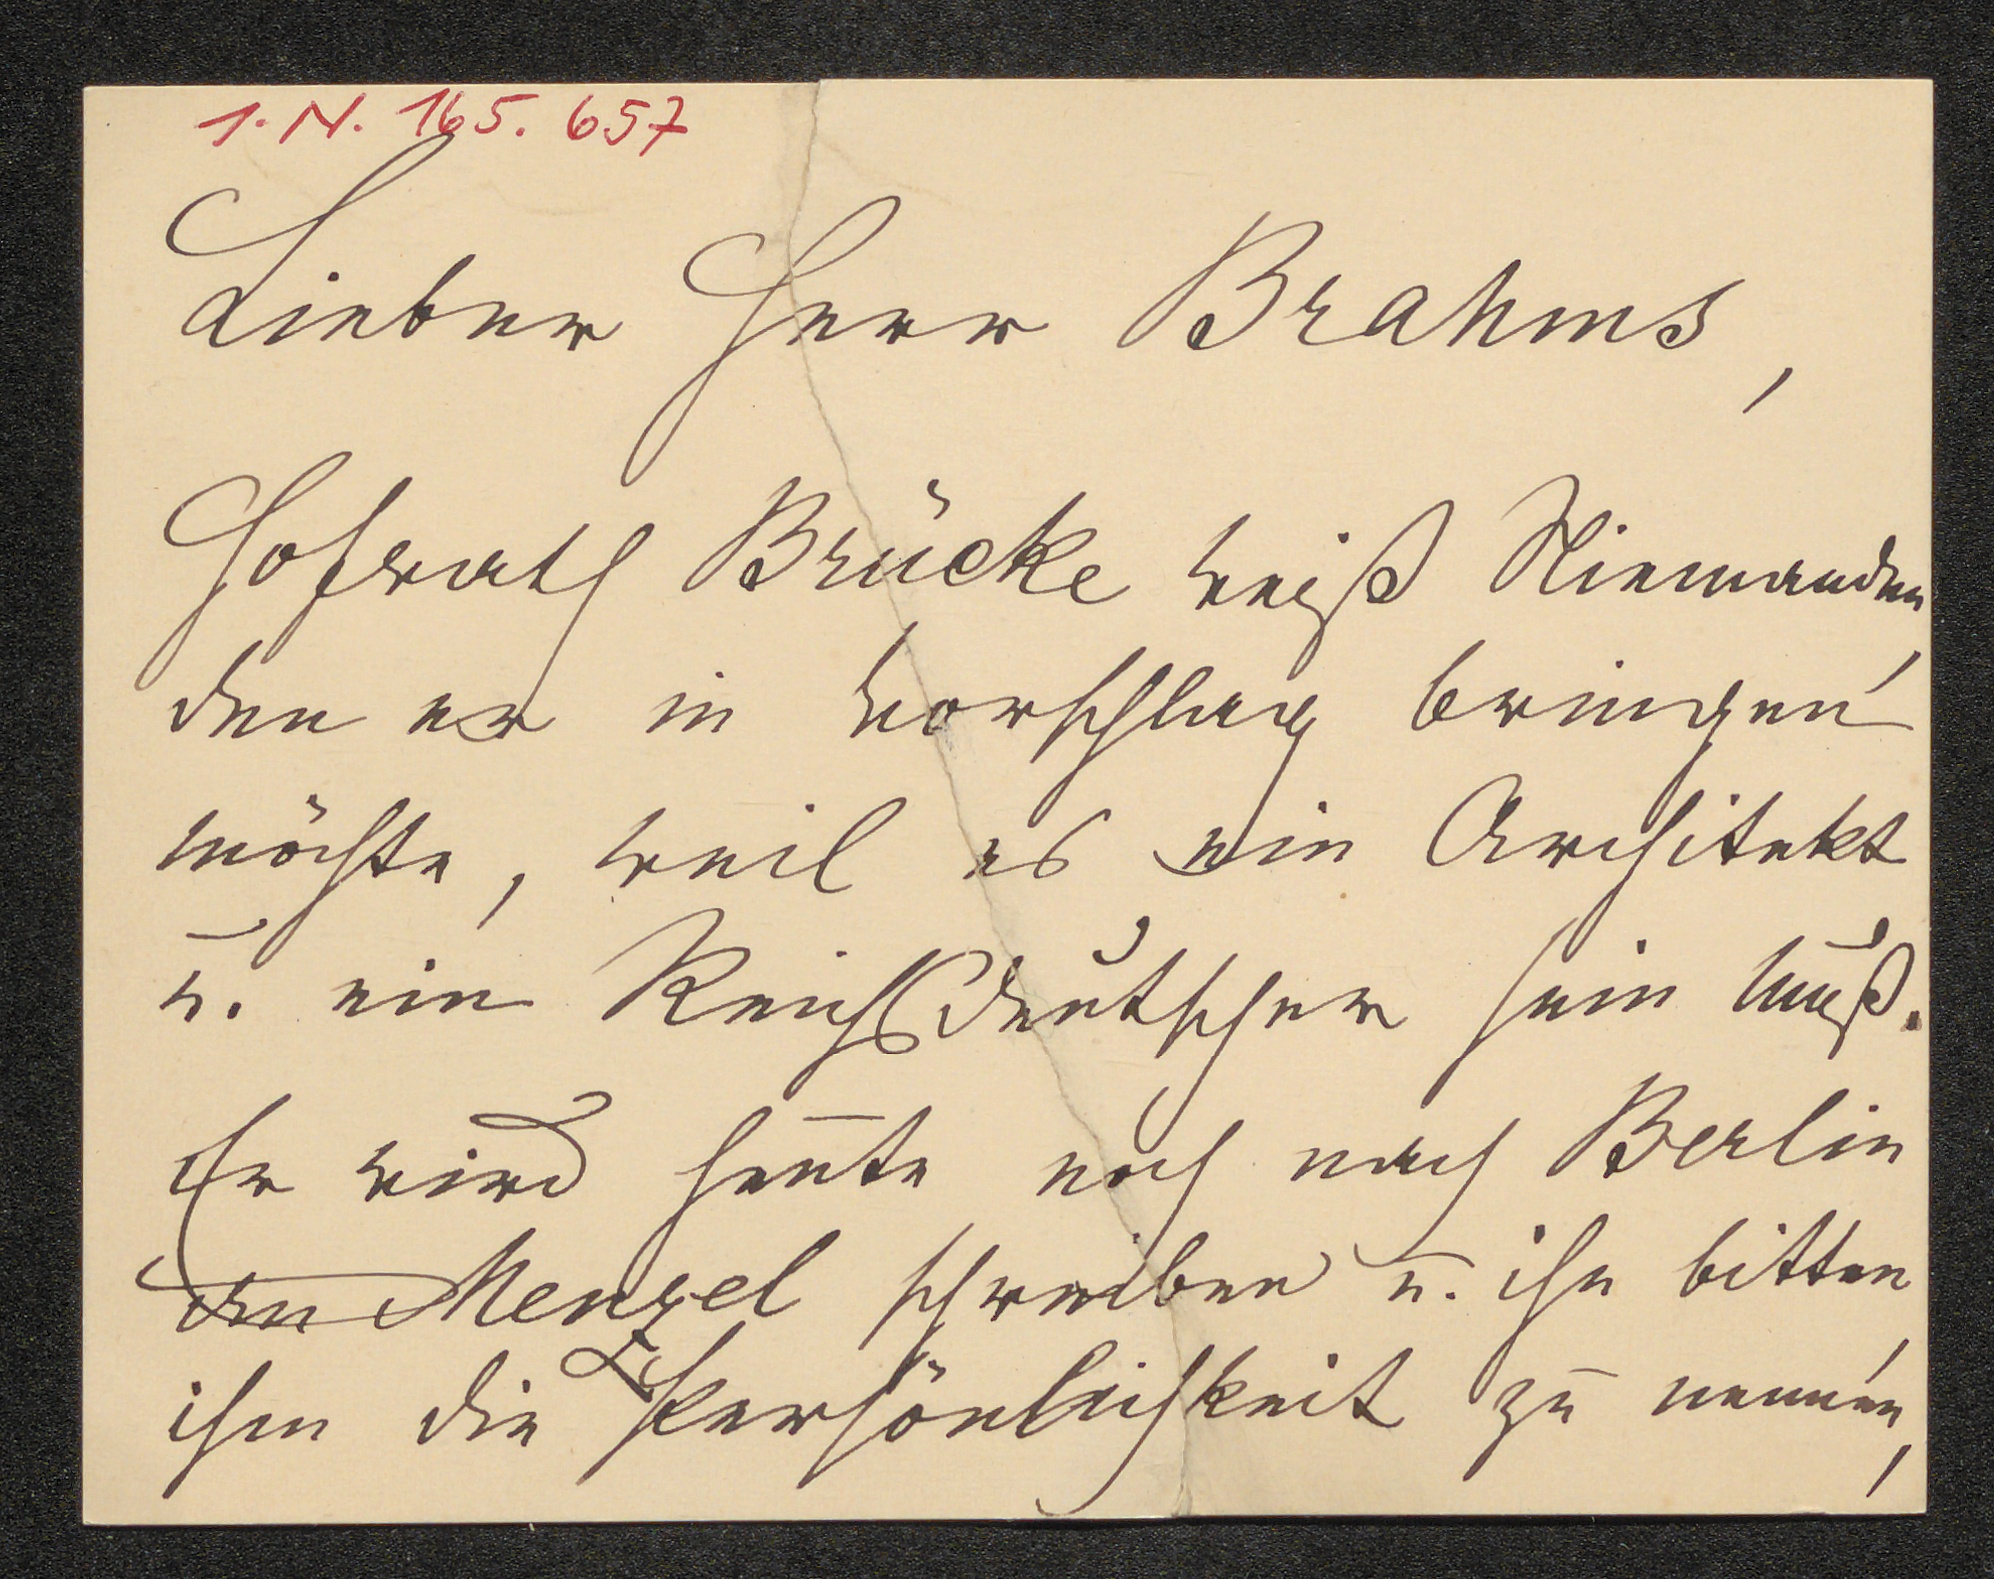 I.N. 165.657
Lieber Herr Brahms,
Hofrath Brücke weiß Niemanden,
den er in Vorschlag bringen
möchte, weil es ein Architekt
u. ein Reichsdeutscher sein muß.
Er wird heute noch nach Berlin
an Menzel schreiben u. ihn bitten
ihm die Persönlichkeit zu nennen,